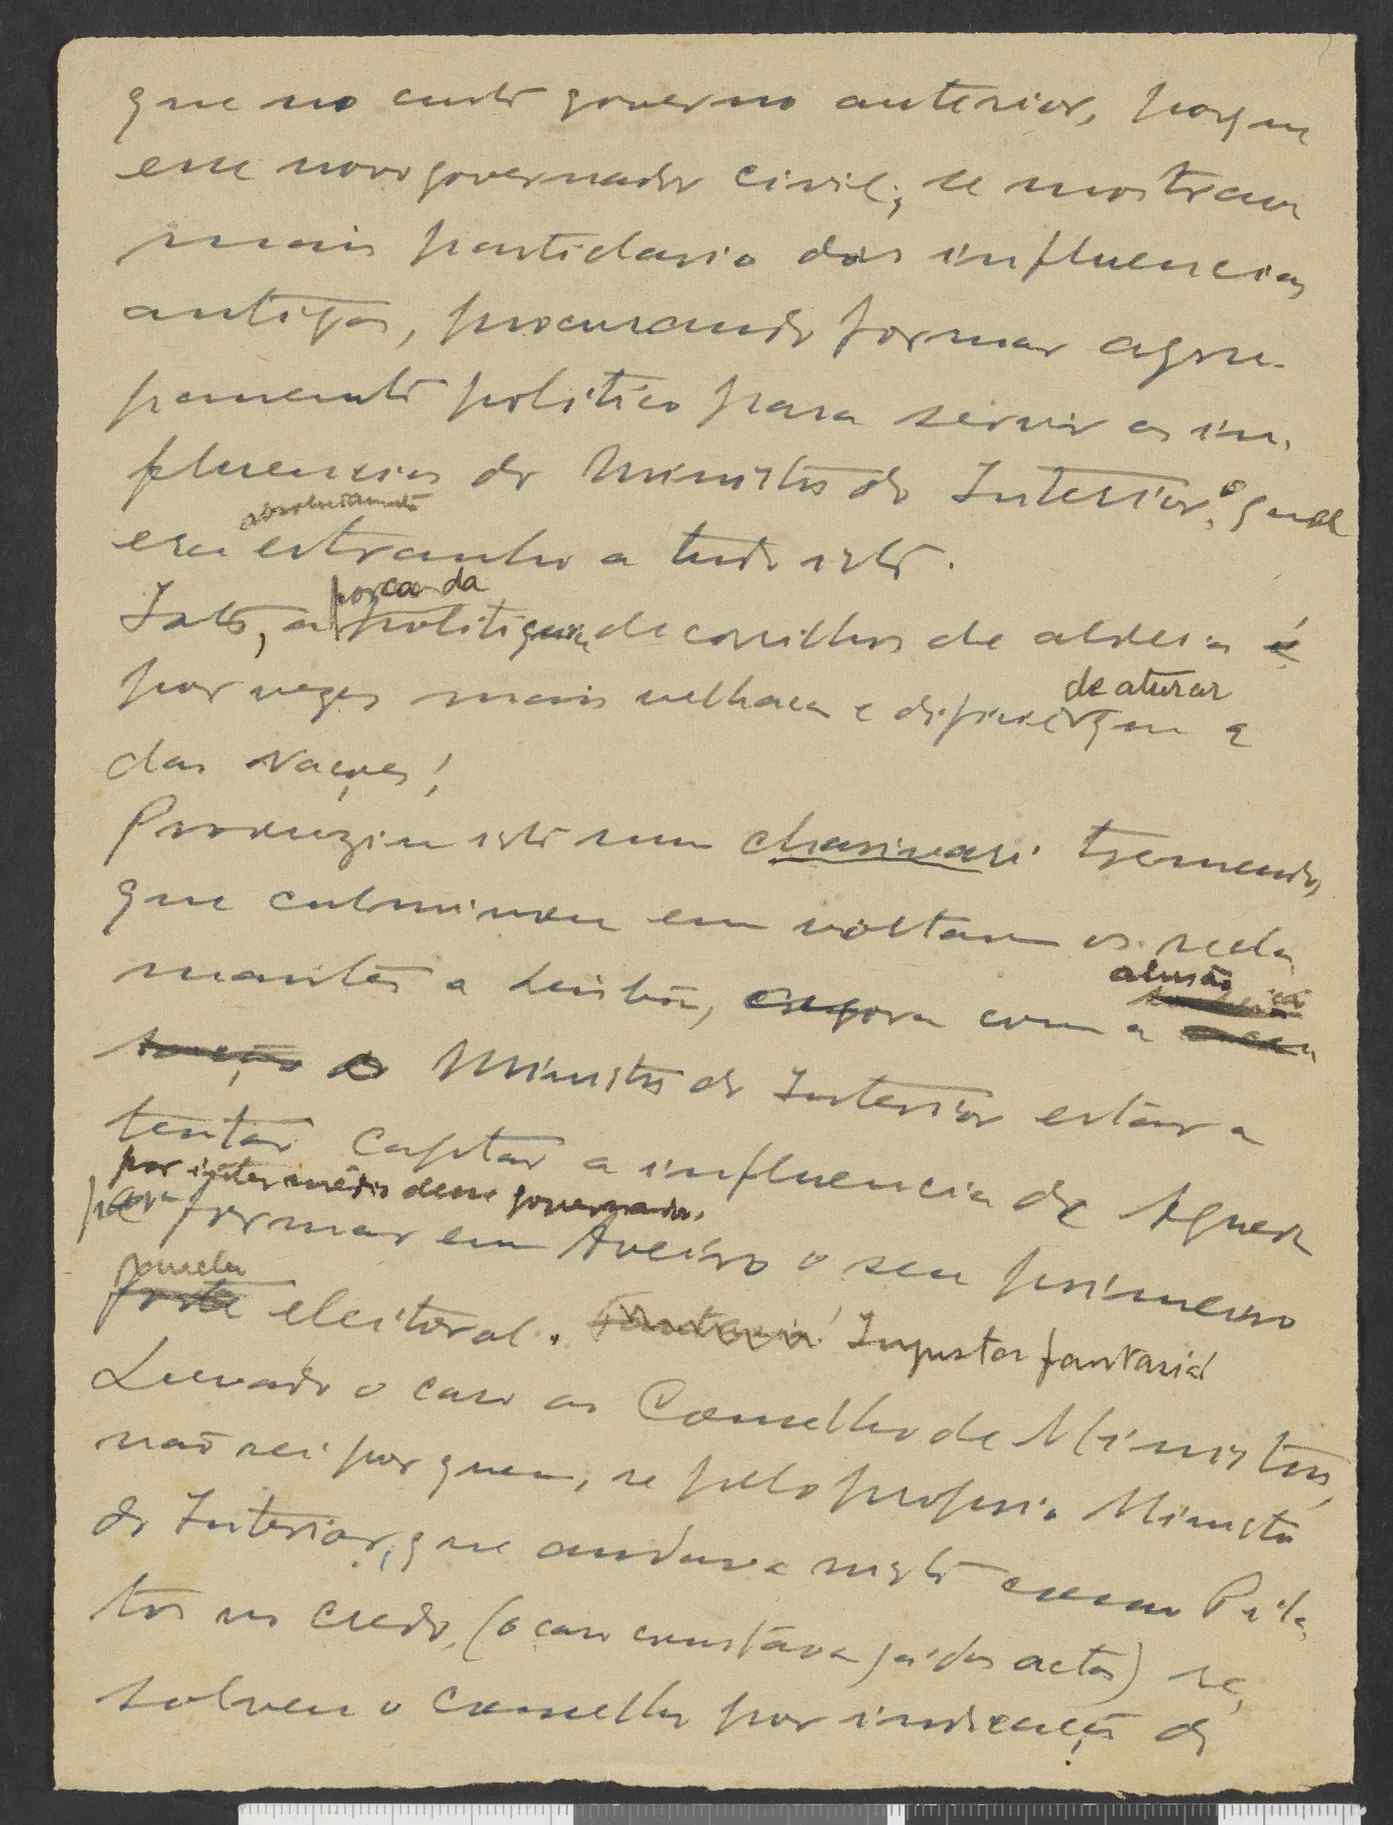 que no curto governo anterior, porque
esse novo governador civil, se mostrava
mais partidario das influencias
antigas, procurando formar agru-
pamento politico para servir as in-
fluencias do Ministro do Interior, o qual
absolutamente
era estranho a tudo isto.
porca da
Isto, a politiquice de corrilhos de aldeia é
de aturar
por vezes mais velhaca e dificil que a
das Nações!
Produziu isto um charivari tremendo,
que culminou em voltarem os recla-
alusão
mantes a Lisboa, agora com a
Ministro do Interior estar a
tentar captar a influencia de Agueda
por intermédio desse governador,
para formar em Aveiro o seu primeiro
panela
forte eleitoral. Fantasia! Injusta fantasia!
Levado o caso ao Conselho de Ministros,
não sei por quem, se pelo proprio Ministro
do Interior, que andava nisto como Pila-
tos no credo, (o caso constava já das actas) re-
solveu o conselho por indicação do